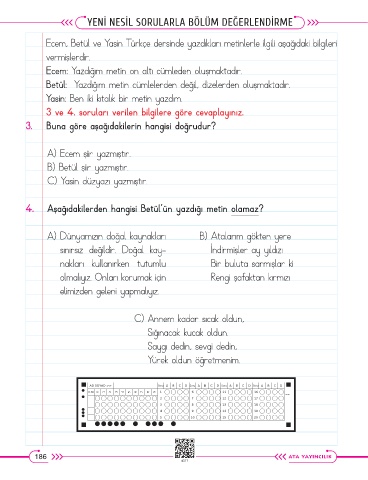 YENİ NESİL SORULARLA BÖLÜM DEĞERLENDİRME
Ecem, Betül ve Yasin Türkçe dersinde yazdıkları metinlerle ilgili aşağıdaki bilgileri
vermişlerdir.
Ecem: Yazdığım metin on altı cümleden oluşmaktadır.
Betül: Yazdığım metin cümlelerden değil, dizelerden oluşmaktadır.
Yasin: Ben iki kıtalık bir metin yazdım.
3 ve 4. soruları verilen bilgilere göre cevaplayınız.
3. Buna göre aşağıdakilerin hangisi doğrudur?
A) Ecem şiir yazmıştır.
B) Betül şiir yazmıştır.
C) Yasin düzyazı yazmıştır.
4. Aşağıdakilerden hangisi Betül'ün yazdığı metin olamaz?
A) Dünyamızın doğal kaynakları
sınırsız değildir. Doğal kay-
nakları kullanırken tutumlu
olmalıyız. Onları korumak için
elimizden geleni yapmalıyız.
B) Atalarım gökten yere
İndirmişler ay yıldızı
Bir buluta sarmışlar ki
Rengi şafaktan kırmızı
C) Annem kadar sıcak oldun,
Sığınacak kucak oldun.
Saygı dedin, sevgi dedin,
Yürek oldun öğretmenim.
186
ATA YAYINCILIK